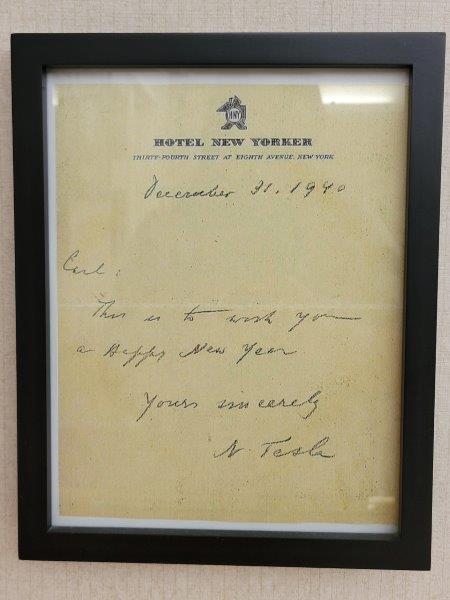 HNY
HOTEL NEW YORKER
THIRTY-FOURTH STREET AT EIGHTH AVENUE, NEW YORK
December 31, 1940
Carl:
This is to wish you
a Happy New Year
Yours sincerely
N. Tesla